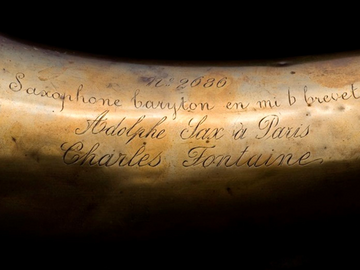 n° 2686
Saxophone baryton en mi b brevet
Adolphe Sax à Paris
Charles Fontaine